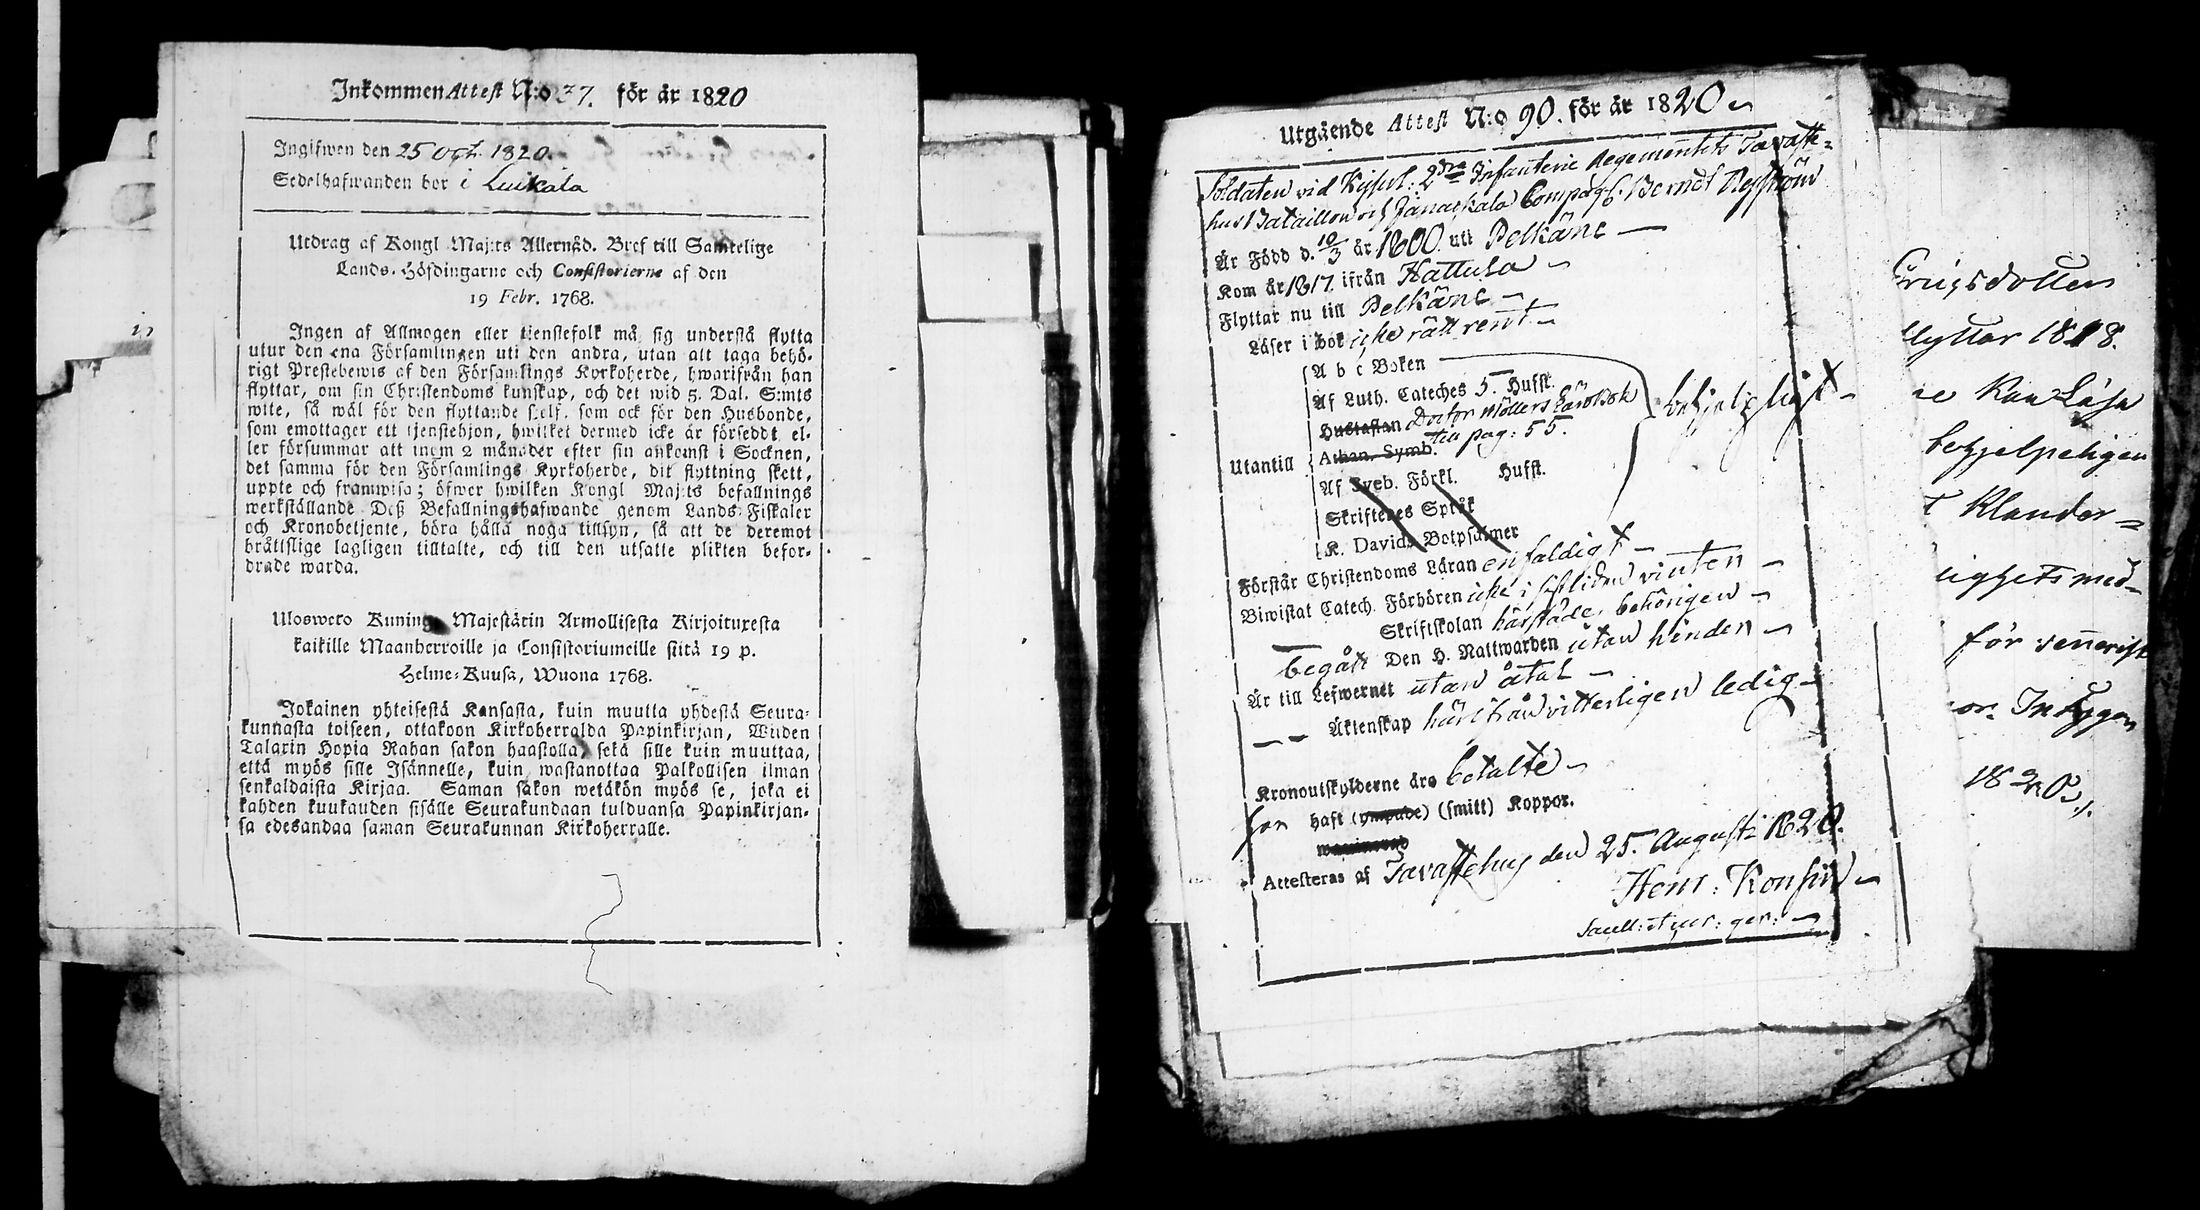 Inkommen Attest N:o 37. för år 1820
Ingifwen den 25 Oct. 1820.
Sedelhafwanden bor i Luikala
Utdrag af Kongl Maj:ts Allernåd. Bref till Samtelige
Lands-Höfdingarne och Consistorierne af den
19 Febr. 1768.
Ingen af Allmogen eller tjenstefolk må sig understå flytta
utur den ena Församlingen uti den andra, utan att taga behö-
rigt Prestebewis af den Församlings Kyrkoherde, hwarifrån han
flyttar, om sin Christendoms kunskap, och det wid 5. Dal. S:mts
wite, så wäl för den flyttande sjelf, som ock för den Husbonde,
som emottager ett tjenstehjon, hwilket dermed icke är försedt el-
ler försummar att inom 2 månader efter sin ankomst i Socknen,
det samma för den Församlings Kyrkoherde, dit flyttning skett,
uppte och framwisa; öfwer hwilken Kongl Maj:ts befallnings
werkställande Deß Befallningshafwande genom Lands-Fiskaler
och Kronobetjente, böra hålla noga tillsyn, så att de deremot
bråttslige lagligen tilltalte, och till den utsatte plikten befor-
drade warda.
Uloswero Kuning. Majestätin Armollisesta Kirjoituxesta
kaikille Maanherroille ja Consistoriumeille siitä 19 p.
Helme-Kuusa, Wuona 1768.
Jokainen yhteisestä Kansasta, kuin muutta yhdestä Seura-
kunnasta toiseen, ottakoon Kirkoherralda Papinkirjan, Wiiden
Talarin Hopia Rahan sakon haastolla, sekä sille kuin muuttaa,
että myös sille Isännelle, kuin wastanottaa Palkollisen ilman
senkaldaista Kirjaa. Saman sakon wetäkön myös se, joka ei
kahden kuukauden sisälle Seurakundaan tulduansa Papinkirjan-
sa edesandaa saman Seurakunnan Kirkoherralle.
Utgående Attest N:o 90. för år 1820
Soldaten vid Kejserl: 2dra Infanterie Regementets Tavaste-
hus Bataillon och Janackala Compag: Berndt
Är Född d. 10/3 år 1800. uti Pelkäne
Kom år 1817 ifrån Hattula
Flyttar nu till Pelkäne
Läser i bok icke rätt rent
A b c Boken
Af Luth. Cateches 5 Hufst.
Hustaflan Doctor Möllers Lärobok
Athan. Symb. till pag: 55.
behjelpligt
Utantill
Af Sveb. Förkl. Hufst.
Skriftenes Språk
K. Davids Botpsalmer
Förstår Christendoms Läran enfaldigt
Biwistat Catech. Förhören icke i sistliden vinter
Skriftskolan härstädes behörigen
begått Den H. Nattwarden utan hinder
Är till Lefwernet utan åtal
Äktenskap härifrån vitterligen ledig
Kronoutskylderne äro betalte
har haft (ympade) (smitt) Koppor.
Attesteras af Tavastehus den 25. Augusti 1820.
Henr: Konsin
Ericsdotter
flyttar 1818.
kan Läsa
behjelpeligen
Klander=
för
18